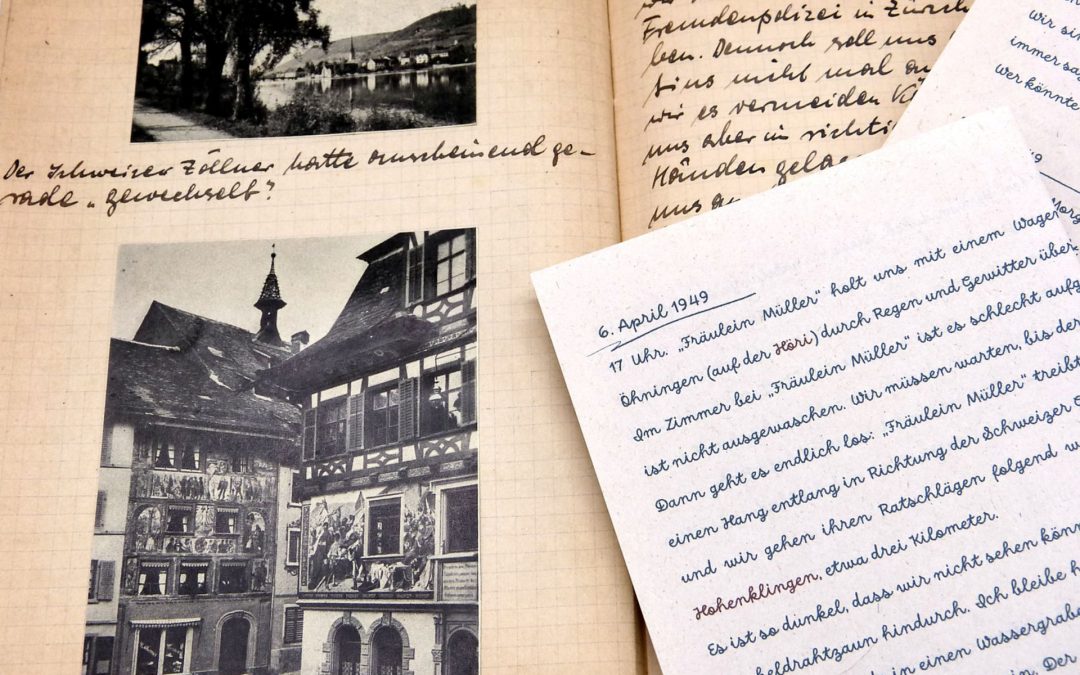 Der Schweizer Zöllner hatte anscheinend ge-
rade „gewechselt"?
Fremdenpolizei in Zürich
ben. Dennoch soll uns
uns nicht mal an
wir es vermeiden
uns aber in richti
Händen
uns
wir si
immer sa
Wer könnte
6. April 1949
17 Uhr. „Fräulein Müller" holt uns mit einem Wagen
Öhningen (auf der Höri) durch Regen und Gewitter über
Im Zimmer bei „Fräulein Müller" ist es schlecht aufg
ist nicht ausgewaschen. Wir müssen warten, bis der
Dann geht es endlich los: „Fräulein Müller" treibt
einen Hang entlang in Richtung der Schweizer
und wir gehen ihren Ratschlägen folgend w
Hohenklingen, etwa drei Kilometer.
Es ist so dunkel, dass wir nicht sehen könn
heldrahtzaun hindurch. Ich bleibe h
in einen Wassergrabe
in. Der